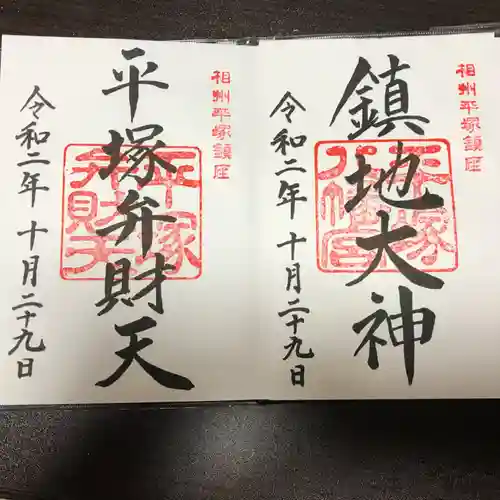 相州平塚鎮座
鎮地大神
平塚八幡宮
令和二年 十月二十九日
相州平塚鎮座
平塚弁財天
平塚弁財天
令和二年 十月二十九日